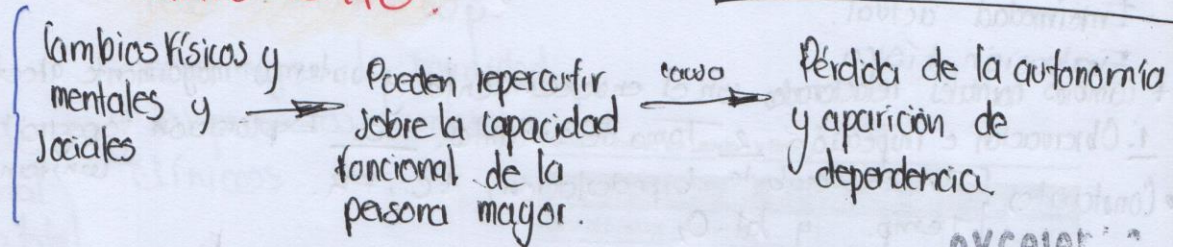 Cambios físicos y
mentales y
sociales
Pueden repercutir
sobre la capacidad
funcional de la
persona mayor.
causa
Pérdida de la autonomía
y aparición de
dependencia.